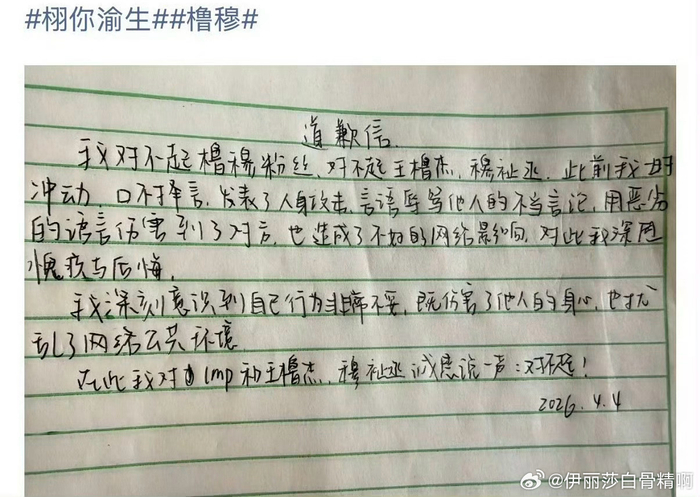 #栩你渝生##橹穆#
道歉信
我对不起橹穆粉丝,对不起王橹杰,穆祉丞,此前我一时
冲动,口不择言,发表了人身攻击,言语辱骂他人的不当言论,用恶劣
的语言伤害到了对方,也造成了不好的网络影响,对此我深感
愧疚与后悔。
我深刻意识到自己行为非常不妥,既伤害了他人的身心,也扰
乱了网络公共环境
在此我对lmp和王橹杰,穆祉丞诚恳说一声:对不起!
2026.4.4
@伊丽莎白骨精啊